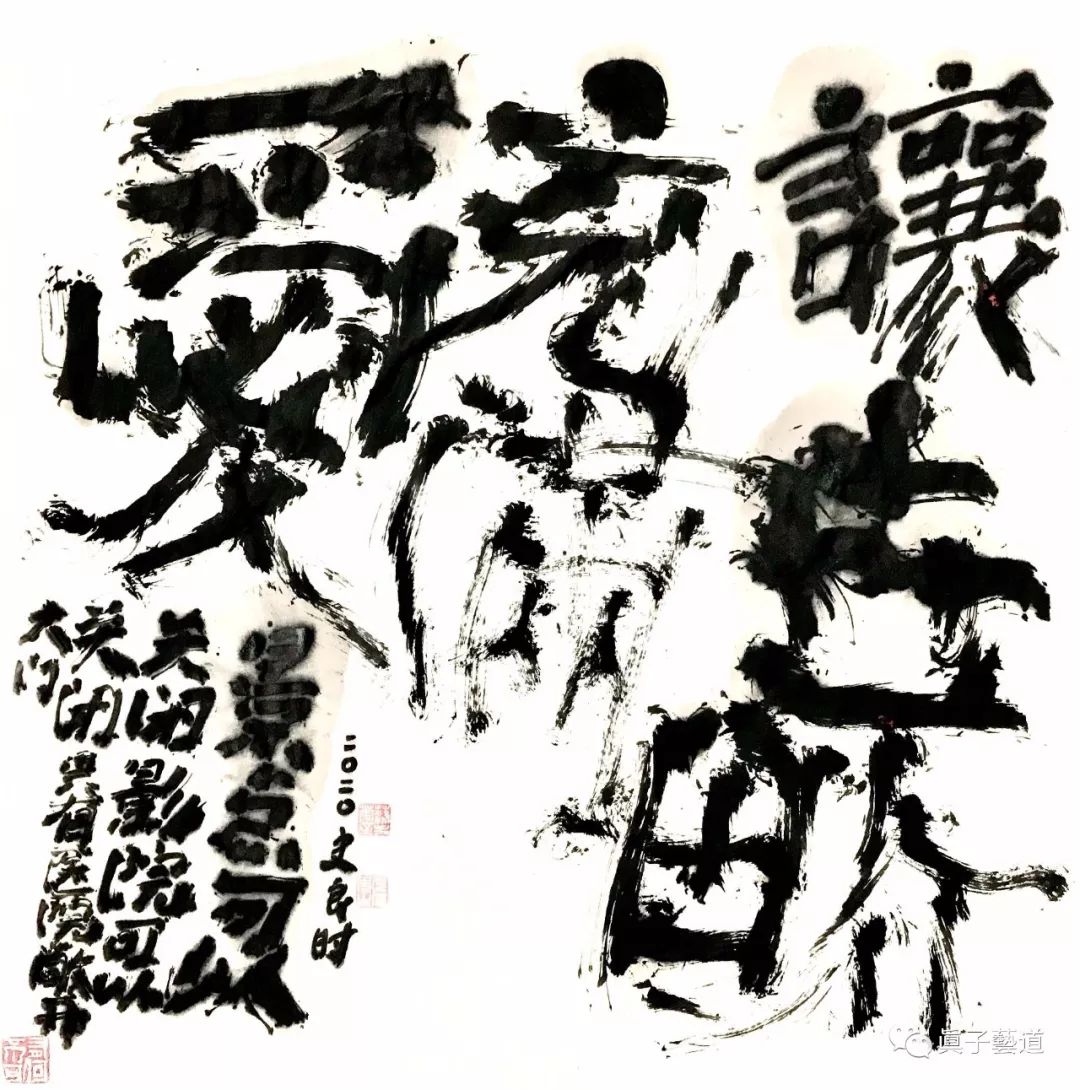 讓世界
充滿
愛
二〇二〇文良时
景点可以
关闭影院可以
关闭只有医院敞开
大门
眞子藝道